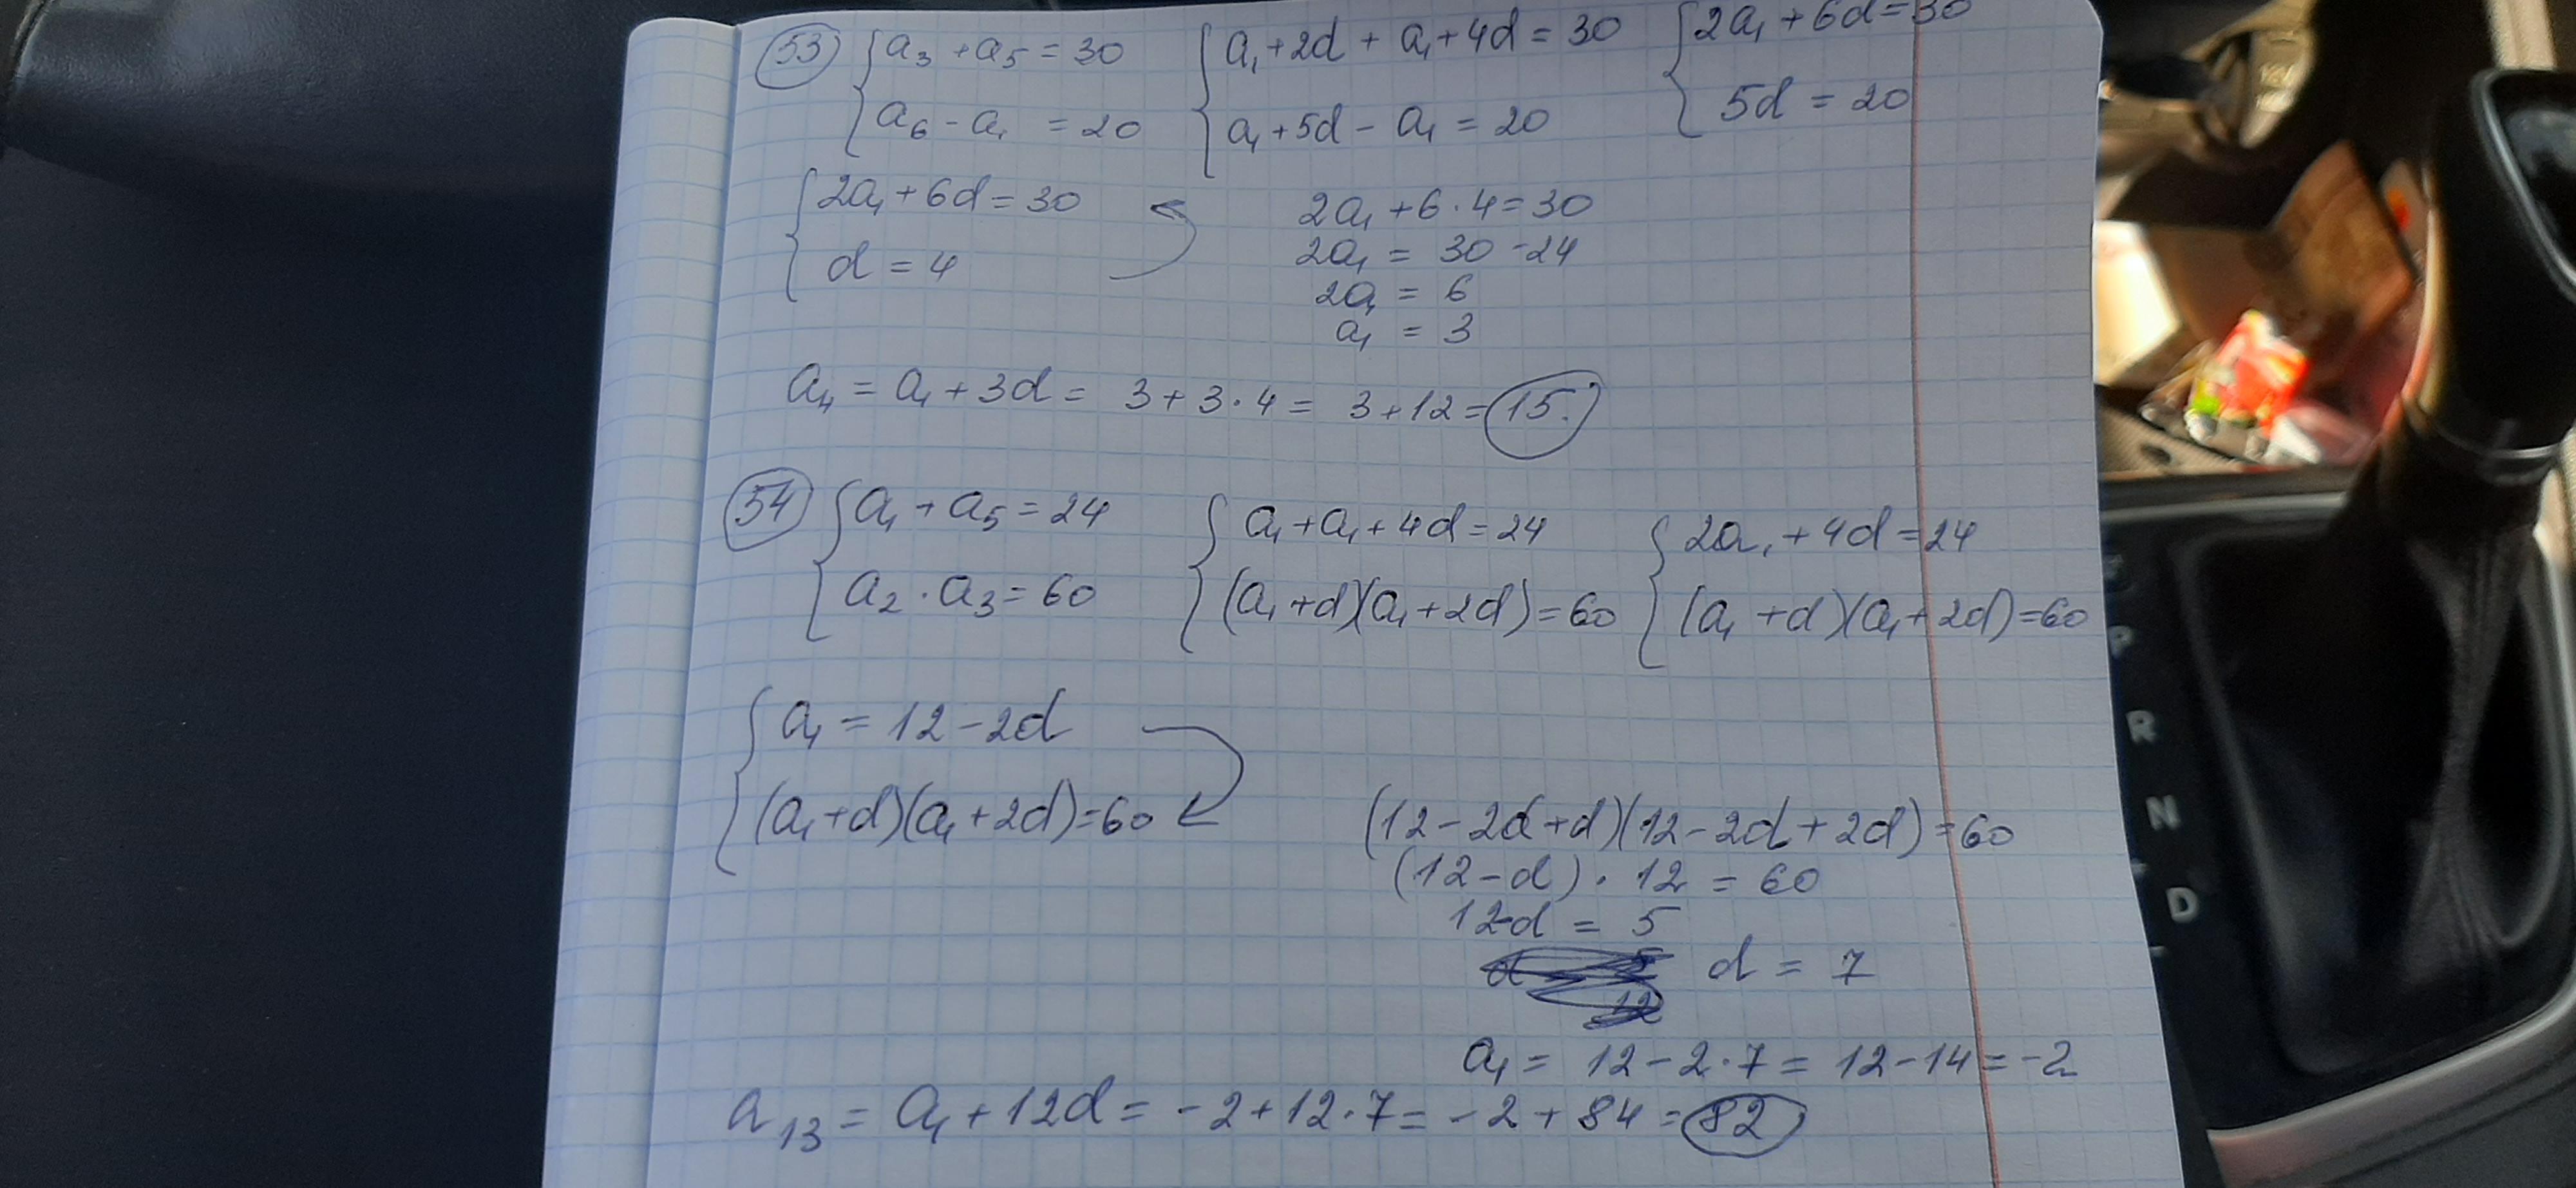 53 { a₃ + a₅ = 30 { a₁ + 2d + a₁ + 4d = 30 { 2a₁ + 6d = 30
a₆ - a₁ = 20 a₁ + 5d - a₁ = 20 5d = 20
{ 2a₁ + 6d = 30 2a₁ + 6 · 4 = 30
d = 4 2a₁ = 30 - 24
2a₁ = 6
a₁ = 3
a₄ = a₁ + 3d = 3 + 3 · 4 = 3 + 12 = 15.
54 { a₁ + a₅ = 24 { a₁ + a₁ + 4d = 24 { 2a₁ + 4d = 24
a₂ · a₃ = 60 (a₁ + d)(a₁ + 2d) = 60 (a₁ + d)(a₁ + 2d) = 60
{ a₁ = 12 - 2d
(a₁ + d)(a₁ + 2d) = 60 (12 - 2d + d)(12 - 2d + 2d) = 60
(12 - d) · 12 = 60
12-d = 5
d = 7
a₁ = 12 - 2 · 7 = 12 - 14 = -2
a₁₃ = a₁ + 12d = -2 + 12 · 7 = -2 + 84 = 82
P
R
N
D